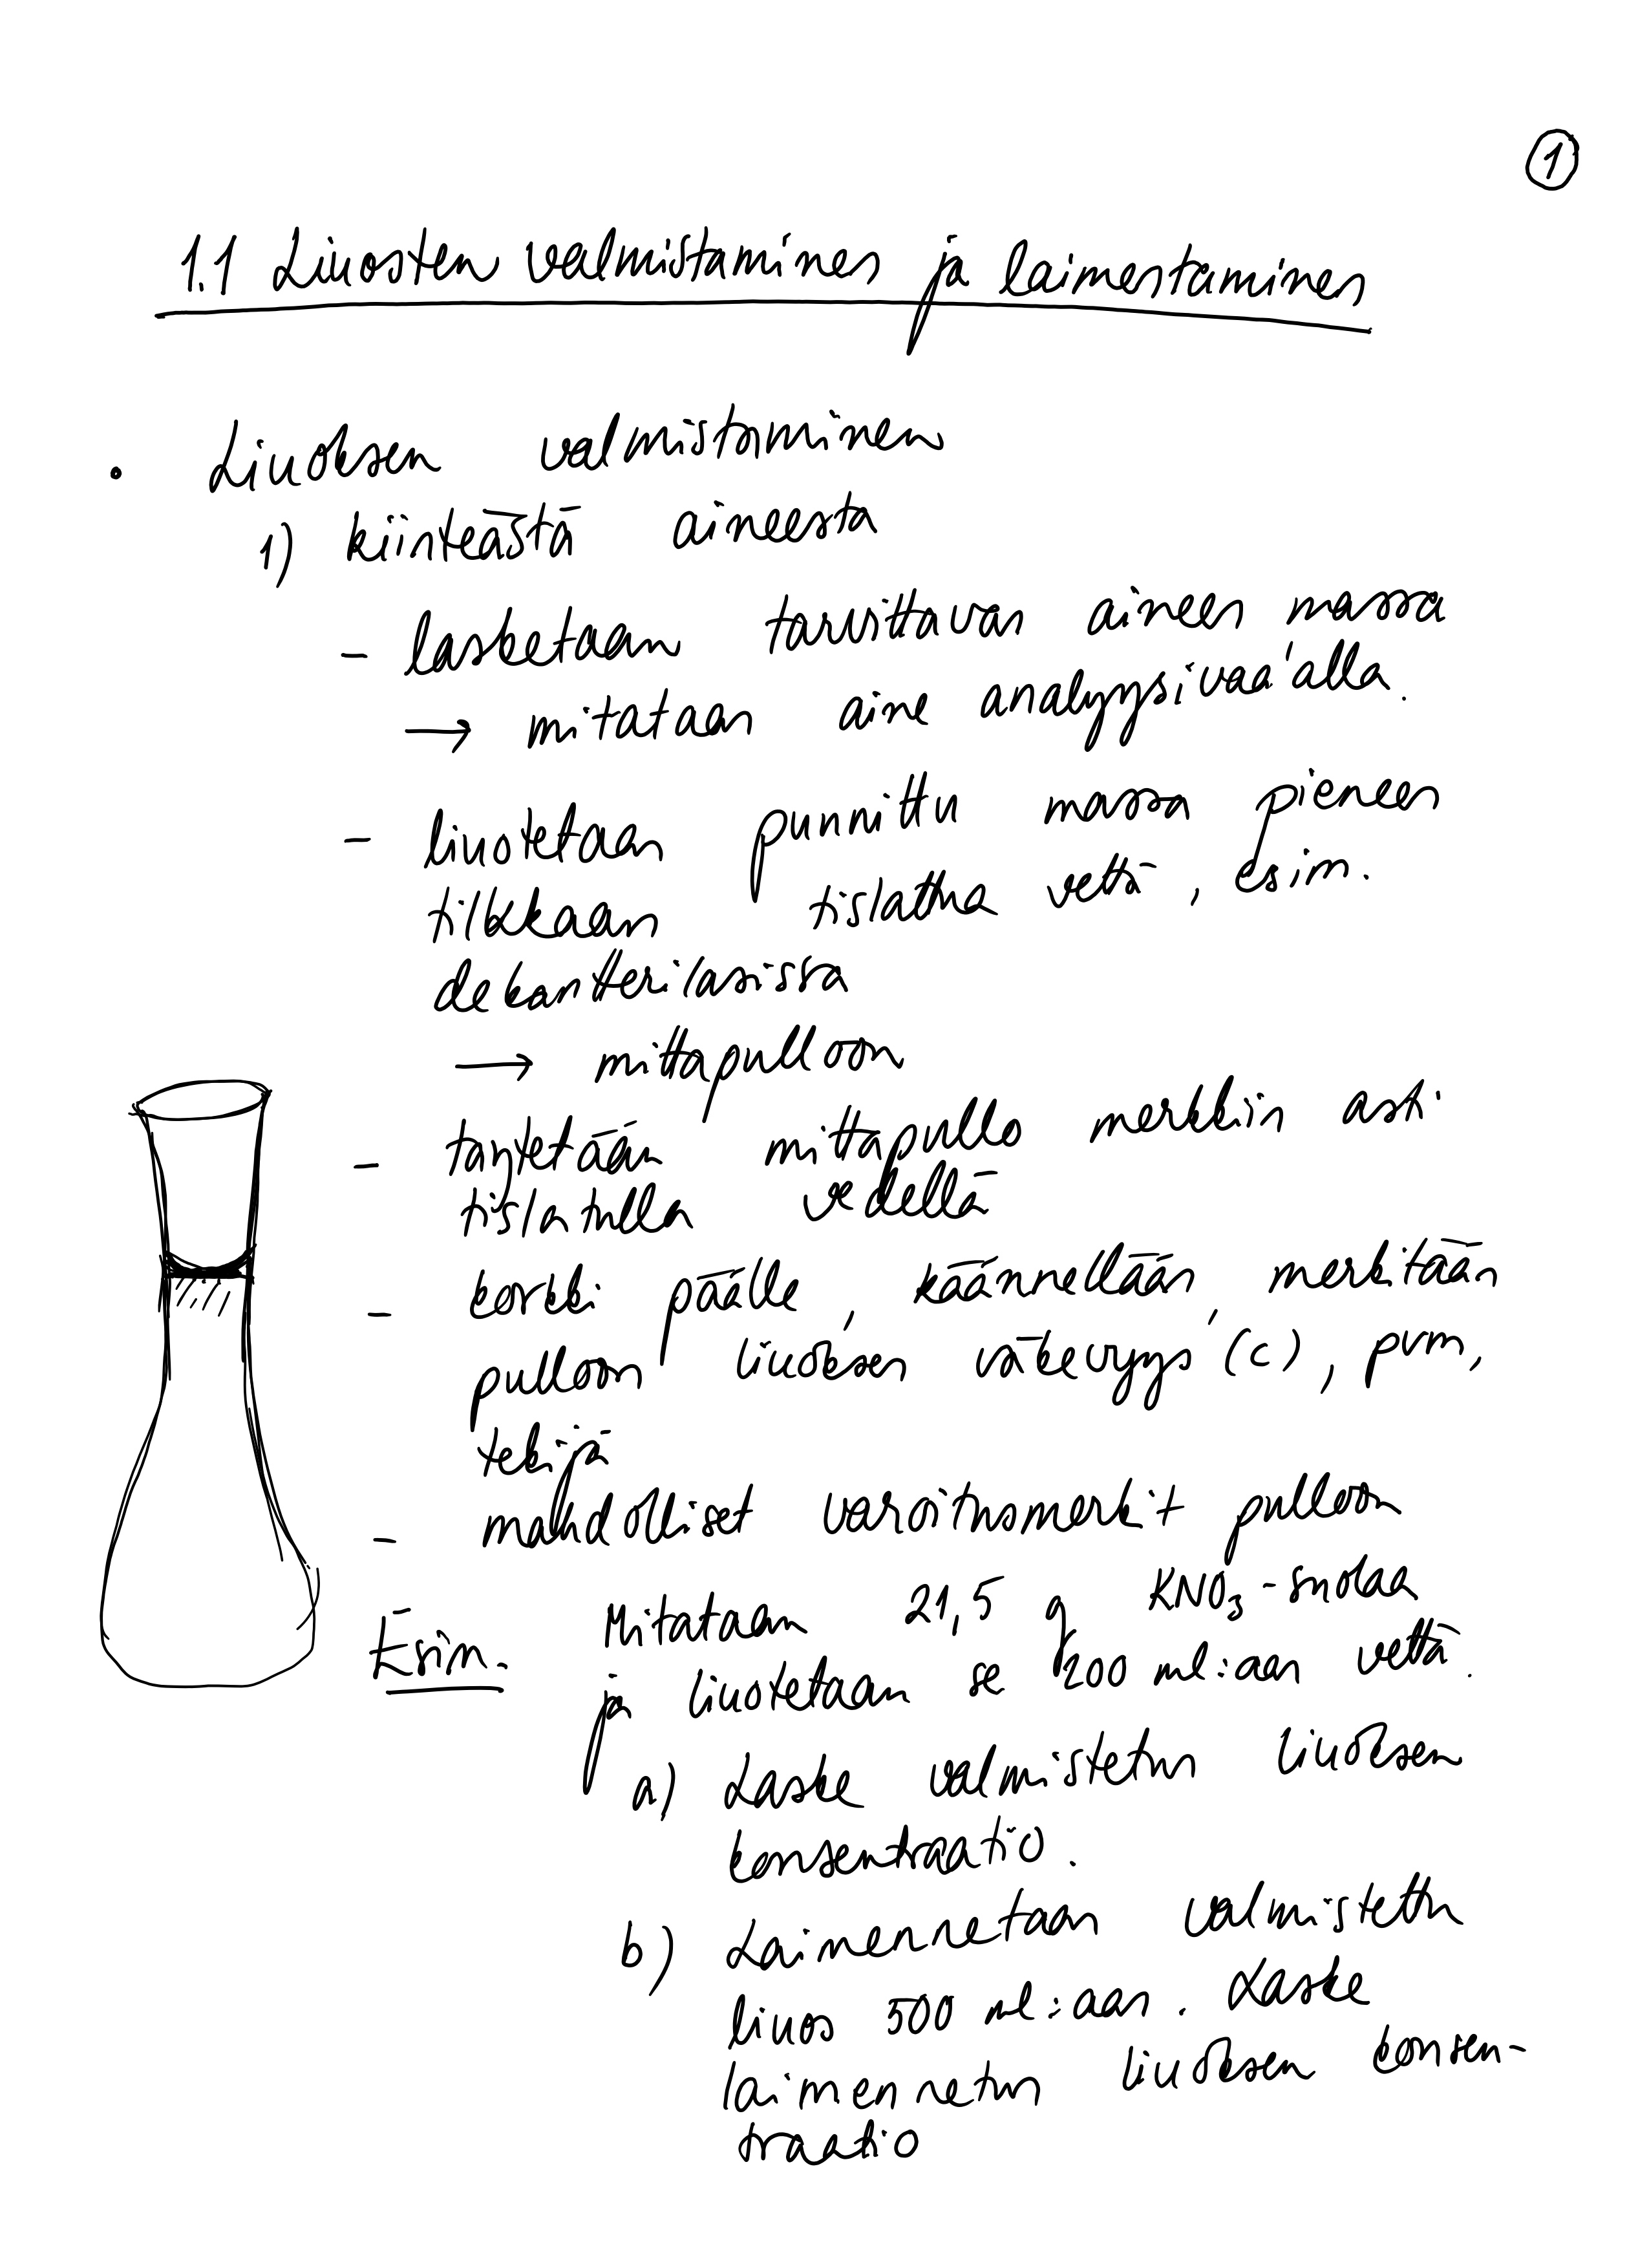 1
1.1 Liuosten valmistaminen ja laimentaminen
• Liuoksen valmistaminen
1) kiinteästä aineesta
- lasketaan tarvittavan aineen massa
→ mitataan aine analyysivaa'alla.
- liuotetaan punnittu massa pieneen
tilkkaan tislattua vettä, esim.
dekantterilasissa
→ mittapulloon
- täytetään mittapullo merkkiin asti
tislatulla vedellä
- korkki päälle, käännellään, merkitään
pulloon liuoksen väkevyys (c), pvm,
tekijä
- mahdolliset varoitusmerkit pulloon
Esim. Mitataan 21,5 g KNO₃-suolaa
ja liuotetaan se 200 ml:aan vettä.
a) Laske valmistetun liuoksen
konsentraatio.
b) Laimennetaan valmistettu
liuos 500 ml:aan. Laske
laimennetun liuoksen konsen-
traatio